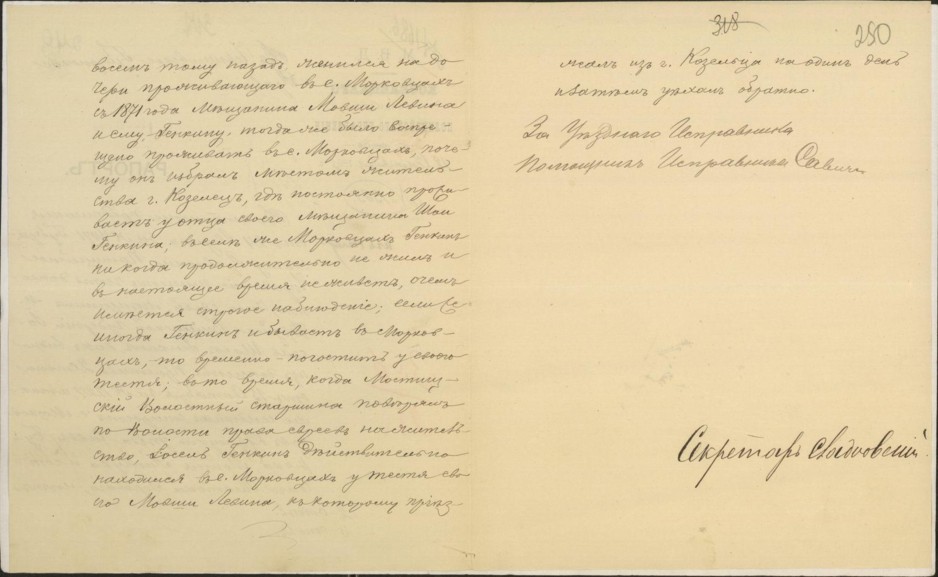 восемъ тому назадъ женился на до
чери проживающаго въ с. Морковцахъ
съ 1871 года Мѣщанина Мовши Левина
и ему, Генкину, тогда же было воспре-
щено проживать въ с. Морковцахъ, поче-
му онъ избралъ мѣстомъ житель-
ства г. Козелецъ, гдѣ постоянно прожи-
ваетъ у отца своего мѣщанина
Генкина; въ семъ же Морковцахъ Генкинъ
никогда продолжительно не жилъ и
въ настоящее время не живетъ, о чемъ
имѣется строгое наблюденіе; если же
иногда Генкинъ и бываетъ въ Морков-
цахъ, то временно - погостить у своего
тестя; въ то время, когда
скій Волостный старшина повѣрялъ
по Волости права евреевъ на житель-
ство, Іосель Генкинъ дѣйствительно
находился въ с. Морковцахъ у тестя сво
его Мовши Левина, къ которому пріѣз-
318
250
жалъ изъ г. Козельца на одинъ день
и затѣмъ уѣхалъ обратно.
За Уѣзднаго Исправника
Помощникъ Исправника Савичъ
Секретарь